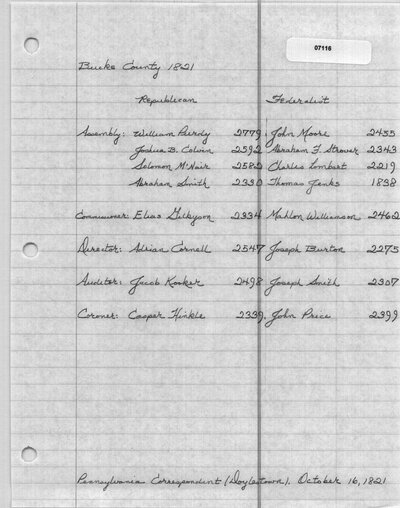 07116
Bucks County 1821
Republican Federalist
Assembly: William Purdy 2779 John Moore 2455
Joshua B. Calvin 2592 Abraham F. Stover 2343
Solomon M'Nair 2582 Charles Lombart 2219
Abraham Smith 2330 Thomas Jenks 1838
Commissioner: Elias Gilkyson 2334 Mahlon Williamson 2462
Director: Adrian Cornell 2547 Joseph Burton 2275
Auditor: Jacob Kooker 2498 Joseph Smith 2307
Coroner: Casper Hinkle 2339 John Price 2399
Pennsylvania Correspondent (Doylestown). October 16, 1821